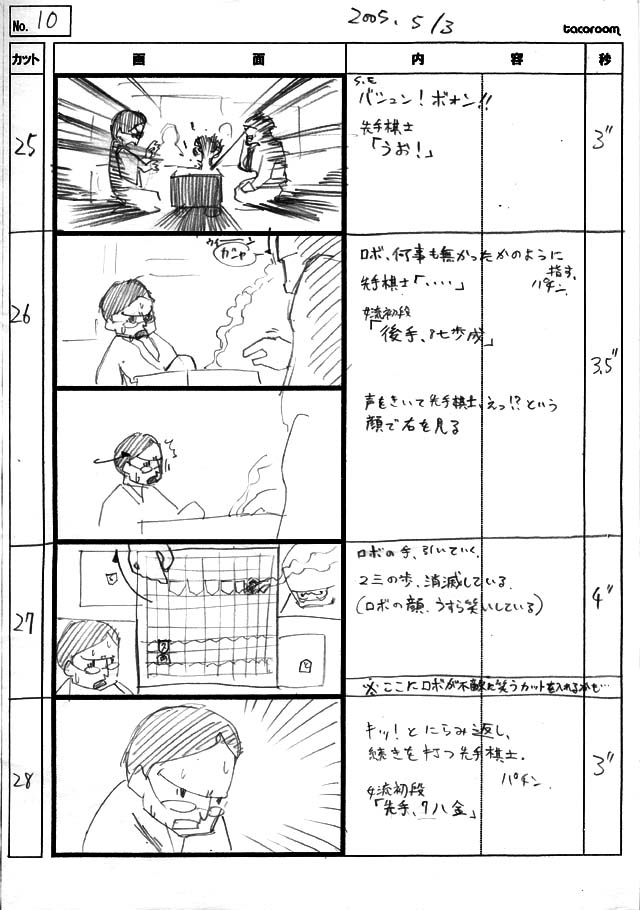 No. 10
2005. 5/3
tacoroom
カット
画面
内容
秒
25
S.E
バシュン！ボォン!!
先手棋士
「うお！」
3"
26
ガシャ
ロボ、何事も無かったかのように
指す。
先手棋士「‥‥」
パチン
女流初段
「後手、8七歩成」
声をきいて先手棋士、えっ!?という
顔で右を見る
3.5"
27
と
と
ロボの手、引いていく。
2三の歩、消滅している。
(ロボの顔、うすら笑いしている)
※ここにロボが不敵に笑うカットを入れるかも…
4"
28
キッ！とにらみ返し、
続きを打つ先手棋士。
パチン
女流初段
「先手、7八金」
3"